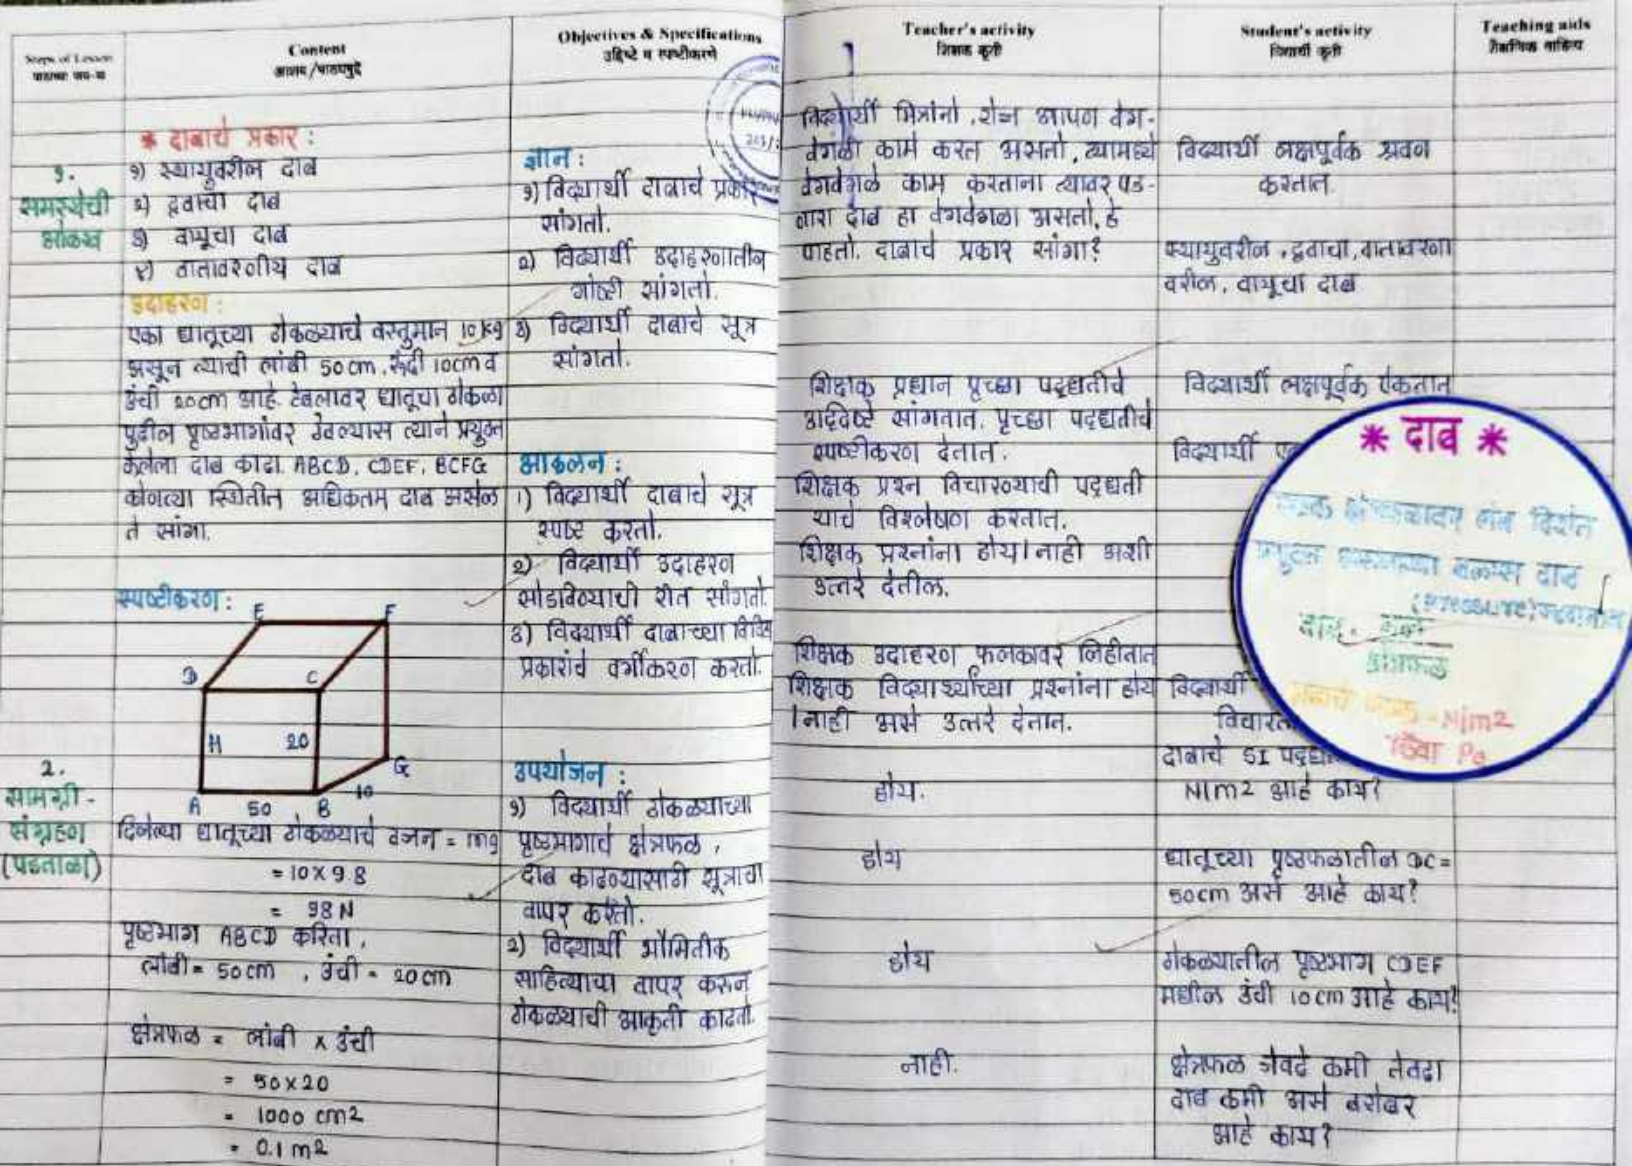 Steps of Lesson
Content
आशय/पाठ्यमुद्दे
Objectives & Specifications
उद्दिष्टे व स्पष्टीकरणे
Teacher's activity
शिक्षक कृती
Student's activity
विद्यार्थी कृती
Teaching aids
शैक्षणिक साहित्य
१.
समस्येची
ओळख
2.
सामग्री -
संग्रहण
(पडताळा)
* दाबाचे प्रकार :
१) स्थायुवरील दाब
२) द्रवाचा दाब
३) वायूचा दाब
४) वातावरणीय दाब
उदाहरण :
एका धातूच्या ठोकळ्याचे वस्तुमान 10 kg
असून त्याची लांबी 50 cm, रुंदी 10cm व
उंची 20cm आहे. टेबलावर धातूचा ठोकळा
पुढील पृष्ठभागांवर ठेवल्यास त्याने प्रयुक्त
केलेला दाब काढा. ABCD, CDEF, BCFG
कोणत्या स्थितीत अधिकतम दाब असेल
ते सांगा.
स्पष्टीकरण :
E F
D C
H 20
G
A 50 B 10
दिलेल्या धातूच्या ठोकळ्याचे वजन = mg
= 10 x 9.8
= 98 N
पृष्ठभाग ABCD करिता,
लांबी = 50 cm , उंची = 20 cm
क्षेत्रफळ = लांबी x उंची
= 50 x 20
= 1000 cm2
= 0.1 m2
ज्ञान :
१) विद्यार्थी दाबाचे प्रकार
सांगतो.
२) विद्यार्थी उदाहरणातील
गोष्टी सांगतो.
३) विद्यार्थी दाबाचे सूत्र
सांगतो.
आकलन :
1) विद्यार्थी दाबाचे सूत्र
स्पष्ट करतो.
२) विद्यार्थी उदाहरण
सोडविण्याची रीत सांगतो.
३) विद्यार्थी दाबाच्या विविध
प्रकारांचे वर्गीकरण करतो.
उपयोजन :
१) विद्यार्थी ठोकळ्याच्या
पृष्ठभागाचे क्षेत्रफळ,
दाब काढण्यासाठी सूत्राचा
वापर करतो.
२) विद्यार्थी भौमितीक
साहित्याचा वापर करून
ठोकळ्याची आकृती काढतो.
विद्यार्थी मित्रांनो, रोज आपण वेग-
वेगळी कामे करत असतो, त्यामध्ये
वेगवेगळे काम करताना त्यावर पड-
णारा दाब हा वेगवेगळा असतो, हे
पाहतो. दाबाचे प्रकार सांगा?
शिक्षक प्रधान पृच्छा पद्धतीचे
उद्दिष्टे सांगतात. पृच्छा पद्धतीचे
स्पष्टीकरण देतात.
शिक्षक प्रश्न विचारण्याची पद्धती
याचे विश्लेषण करतात.
शिक्षक प्रश्नांना होय/नाही अशी
उत्तरे देतील.
शिक्षक उदाहरण फलकावर लिहीतात
शिक्षक विद्यार्थ्यांच्या प्रश्नांना होय
/नाही असे उत्तरे देतात.
होय.
होय
होय
नाही.
विद्यार्थी लक्षपूर्वक श्रवण
करतात.
स्थायुवरील, द्रवाचा, वातावरणा
वरील, वायूचा दाब
विद्यार्थी लक्षपूर्वक ऐकतात
विद्यार्थी
विद्यार्थी
दाबाचे SI
N/m2 आहे काय?
धातूच्या पृष्ठफळातील DC =
50cm असे आहे काय?
ठोकळ्यातील पृष्ठभाग CDEF
मधील उंची 10 cm आहे काय?
क्षेत्रफळ जेवढे कमी तेवढा
दाब कमी असे बरोबर
आहे काय?
* दाब *
दाब
(pressure)
दाब = बल
क्षेत्रफळ
N/m2
किंवा Pa